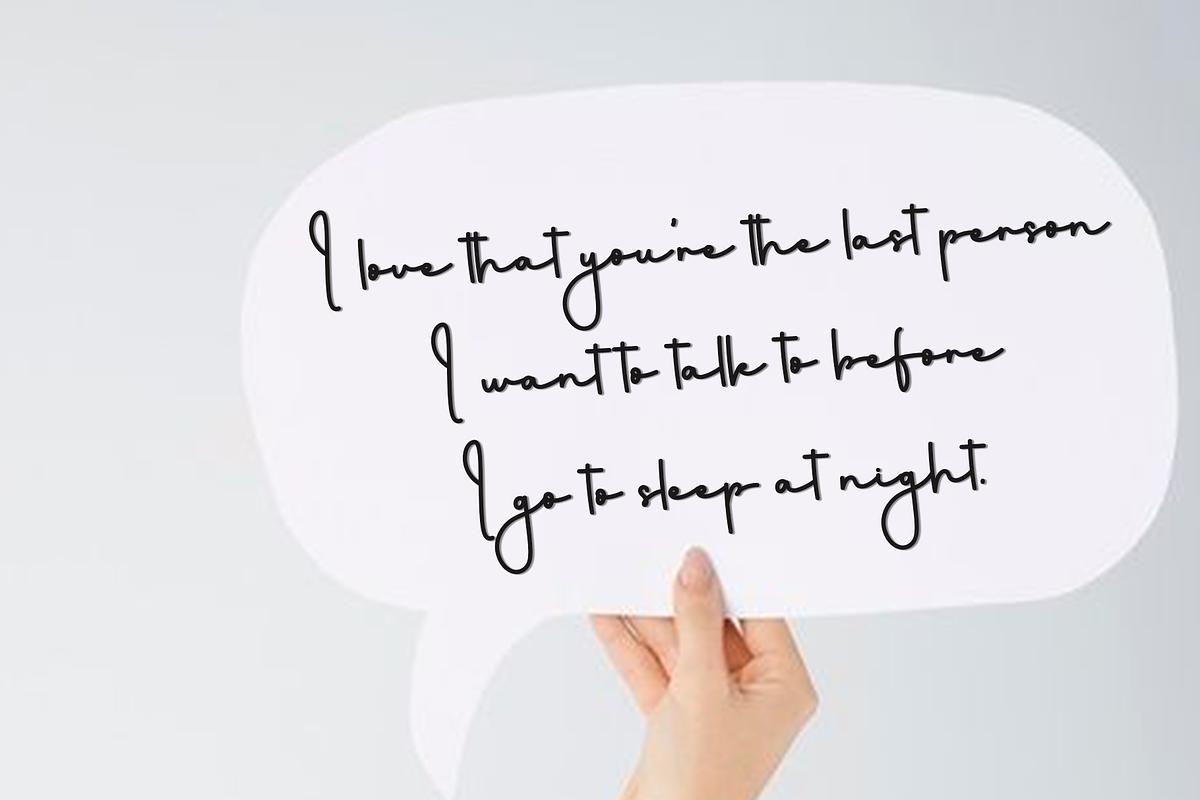 I love that you're the last person
I want to talk to before
I go to sleep at night.